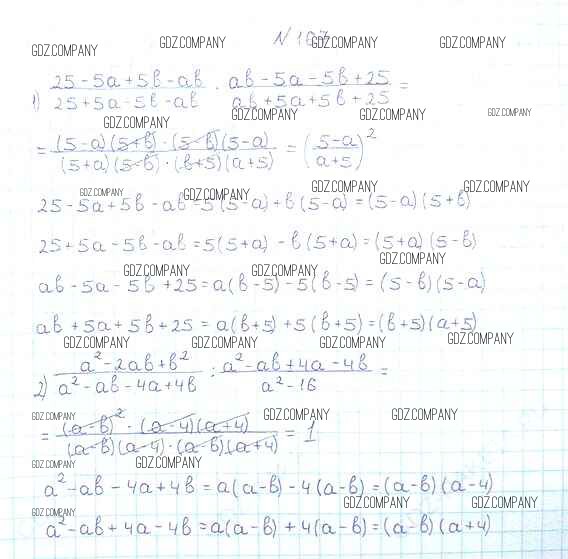 GDZ.COMPANY GDZ.COMPANY N 167 GDZ.COMPANY GDZ.COMPANY
1) (25 - 5a + 5b - ab)/(25 + 5a - 5b - ab) · (ab - 5a - 5b + 25)/(ab + 5a + 5b + 25) =
GDZ.COMPANY GDZ.COMPANY GDZ.COMPANY GDZ.COMPANY
= ((5-a)(5+b) · (5-b)(5-a))/((5+a)(5-b) · (b+5)(a+5)) = ((5-a)/(a+5))²
GDZ.COMPANY GDZ.COMPANY GDZ.COMPANY GDZ.COMPANY
25 - 5a + 5b - ab = 5(5-a) + b(5-a) = (5-a)(5+b)
25 + 5a - 5b - ab = 5(5+a) - b(5+a) = (5+a)(5-b)
GDZ.COMPANY GDZ.COMPANY GDZ.COMPANY
ab - 5a - 5b + 25 = a(b-5) - 5(b-5) = (5-b)(5-a)
ab + 5a + 5b + 25 = a(b+5) + 5(b+5) = (b+5)(a+5)
GDZ.COMPANY GDZ.COMPANY GDZ.COMPANY GDZ.COMPANY
2) (a² - 2ab + b²)/(a² - ab - 4a + 4b) : (a² - ab + 4a - 4b)/(a² - 16) =
GDZ.COMPANY GDZ.COMPANY GDZ.COMPANY
= ((a-b)² · (a-4)(a+4))/((a-b)(a-4) · (a-b)(a+4)) = 1
GDZ.COMPANY GDZ.COMPANY
a² - ab - 4a + 4b = a(a-b) - 4(a-b) = (a-b)(a-4)
GDZ.COMPANY GDZ.COMPANY GDZ.COMPANY
a² - ab + 4a - 4b = a(a-b) + 4(a-b) = (a-b)(a+4)